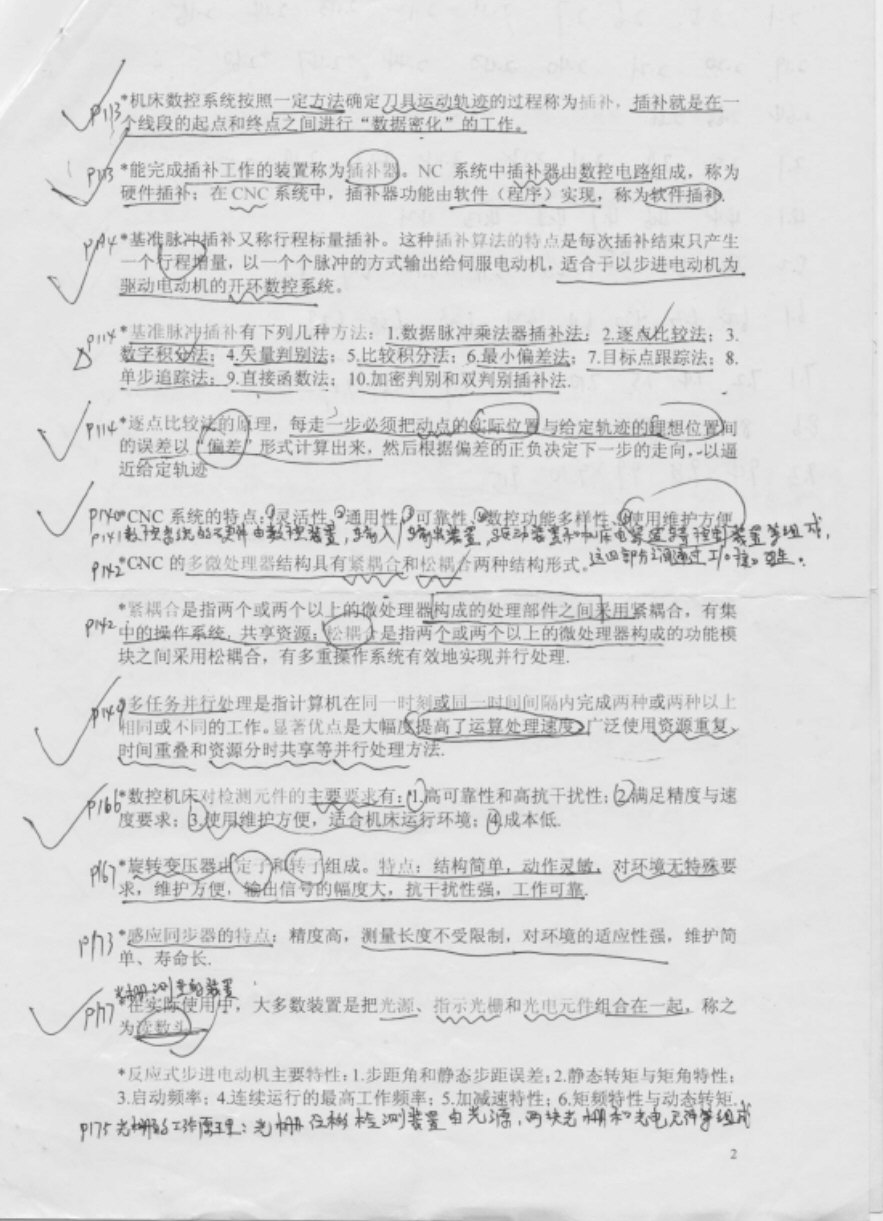 p113 *机床数控系统按照一定方法确定刀具运动轨迹的过程称为插补，插补就是在一
个线段的起点和终点之间进行“数据密化”的工作。
p113 *能完成插补工作的装置称为插补器。NC 系统中插补器由数控电路组成，称为
硬件插补；在 CNC 系统中，插补器功能由软件（程序）实现，称为软件插补.
p114 *基准脉冲插补又称行程标量插补。这种插补算法的特点是每次插补结束只产生
一个行程增量，以一个个脉冲的方式输出给伺服电动机，适合于以步进电动机为
驱动电动机的开环数控系统。
p114 *基准脉冲插补有下列几种方法：1.数据脉冲乘法器插补法；2.逐点比较法；3.
数字积分法；4.矢量判别法；5.比较积分法；6.最小偏差法；7.目标点跟踪法；8.
单步追踪法；9.直接函数法；10.加密判别和双判别插补法.
p114 *逐点比较法的原理，每走一步必须把动点的实际位置与给定轨迹的理想位置间
的误差以“偏差”形式计算出来，然后根据偏差的正负决定下一步的走向，以逼
近给定轨迹
p140 *CNC 系统的特点:①灵活性 ②通用性 ③可靠性 ④数控功能多样性 ⑤使用维护方便
p141 数控系统的硬件由数控装置,输入/输出装置,驱动装置和机床电器逻辑控制装置等组成,
这四部分之间通过I/O接口互连.
p142 *CNC 的多微处理器结构具有紧耦合和松耦合两种结构形式。
p142 *紧耦合是指两个或两个以上的微处理器构成的处理部件之间采用紧耦合，有集
中的操作系统，共享资源；松耦合是指两个或两个以上的微处理器构成的功能模
块之间采用松耦合，有多重操作系统有效地实现并行处理.
p149 *多任务并行处理是指计算机在同一时刻或同一时间间隔内完成两种或两种以上
相同或不同的工作。显著优点是大幅度提高了运算处理速度，广泛使用资源重复、
时间重叠和资源分时共享等并行处理方法.
p166 *数控机床对检测元件的主要要求有：1.高可靠性和高抗干扰性；2.满足精度与速
度要求；3.使用维护方便，适合机床运行环境；4.成本低.
p167 *旋转变压器由定子和转子组成。特点：结构简单，动作灵敏，对环境无特殊要
求，维护方便，输出信号的幅度大，抗干扰性强，工作可靠.
p173 *感应同步器的特点：精度高，测量长度不受限制，对环境的适应性强，维护简
单、寿命长.
光栅测量的装置
p177 *在实际使用中，大多数装置是把光源、指示光栅和光电元件组合在一起，称之
为读数头.
*反应式步进电动机主要特性：1.步距角和静态步距误差；2.静态转矩与矩角特性；
3.启动频率；4.连续运行的最高工作频率；5.加减速特性；6.矩频特性与动态转矩.
p175 光栅的工作原理：光栅位移检测装置由光源，两块光栅和光电元件等组成
2